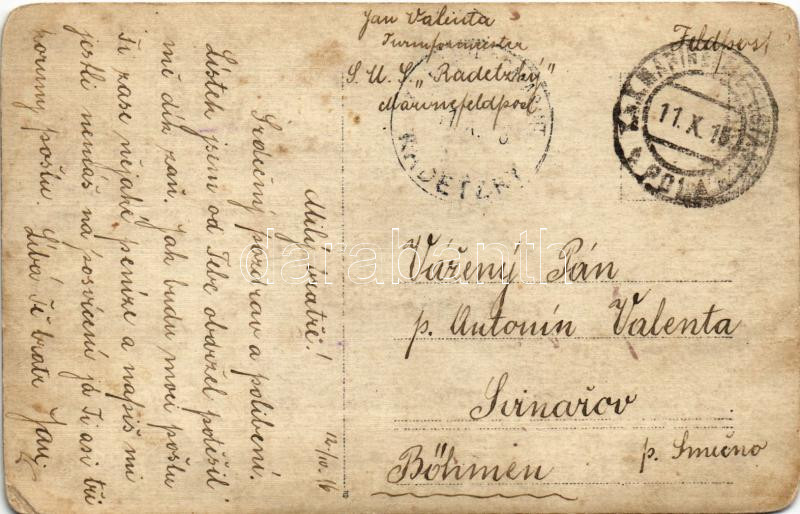 Jan Valenta
Turmformeister
S. M. S. "Radetzký"
Marinefeldpost
Feldpost
RADETZKY
K.U.K. MARINEFELDPOSTAMT
11. X. 16
POLA
Vážený Pán
p. Antonín Valenta
Srnařov
p. Smečno
Böhmen
12/IV. 16
Milý bratře!
Srdečný pozdrav a políbení.
Lístek jsem od Tebe obdržel potěšil
mě dík zaň. Jak budu moci pošlu
Ti zase nějaké peníze a napiš mi
jestli nemáš na posvícení já Ti asi tři
koruny pošlu. Líbá Tě bratr Jan
darabanth